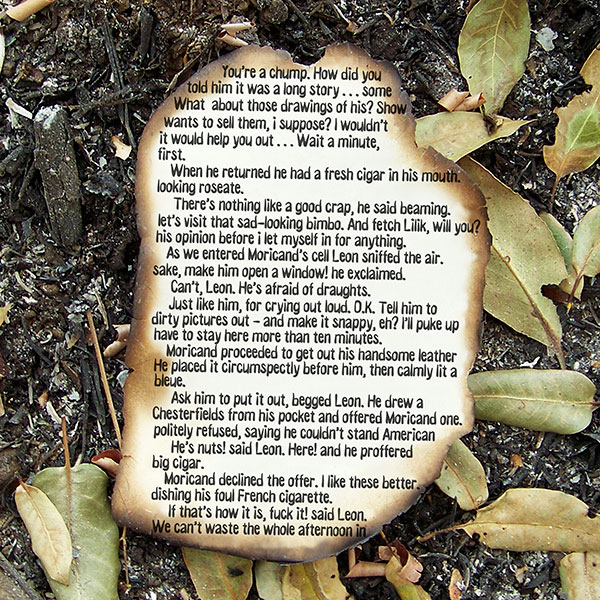 You're a chump. How did you
told him it was a long story . . . some
What about those drawings of his? Show
wants to sell them, i suppose? I wouldn't
it would help you out . . . Wait a minute,
first.
When he returned he had a fresh cigar in his mouth.
looking roseate.
There's nothing like a good crap, he said beaming.
let's visit that sad-looking bimbo. And fetch Lilik, will you?
his opinion before i let myself in for anything.
As we entered Moricand's cell Leon sniffed the air.
sake, make him open a window! he exclaimed.
Can't, Leon. He's afraid of draughts.
Just like him, for crying out loud. O.K. Tell him to
dirty pictures out – and make it snappy, eh? I'll puke up
have to stay here more than ten minutes.
Moricand proceeded to get out his handsome leather
He placed it circumspectly before him, then calmly lit a
bleue.
Ask him to put it out, begged Leon. He drew a
Chesterfields from his pocket and offered Moricand one.
politely refused, saying he couldn't stand American
He's nuts! said Leon. Here! and he proffered
big cigar.
Moricand declined the offer. I like these better.
dishing his foul French cigarette.
If that's how it is, fuck it! said Leon.
We can't waste the whole afternoon in